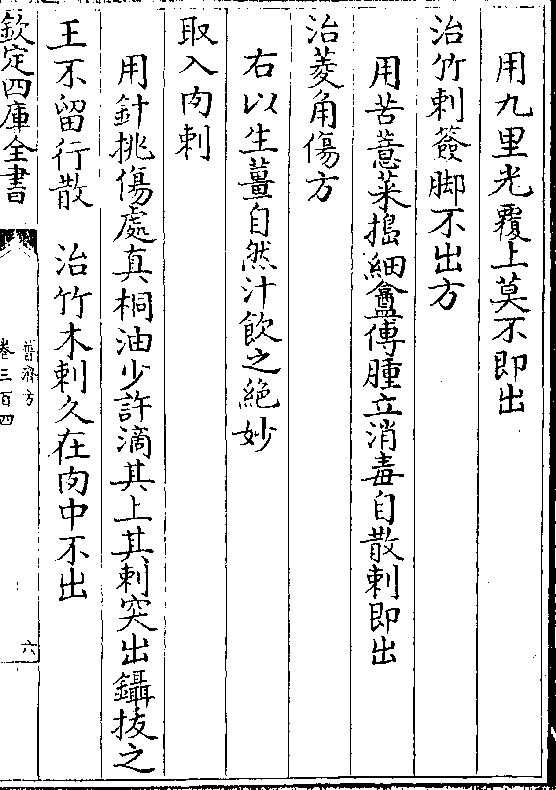 用九里光覆上莫不即出
治竹刺簽脚不出方
用苦薏菜搗細盦傅腫立消毒自散刺即出
治菱角傷方
右以生薑自然汁飲之絶妙
取入肉刺
用針挑傷處真桐油少許滴其上其刺突出鑷拔之
王不留行散　治竹木刺久在肉中不出
欽定四庫全書
普濟方
卷三百四
六